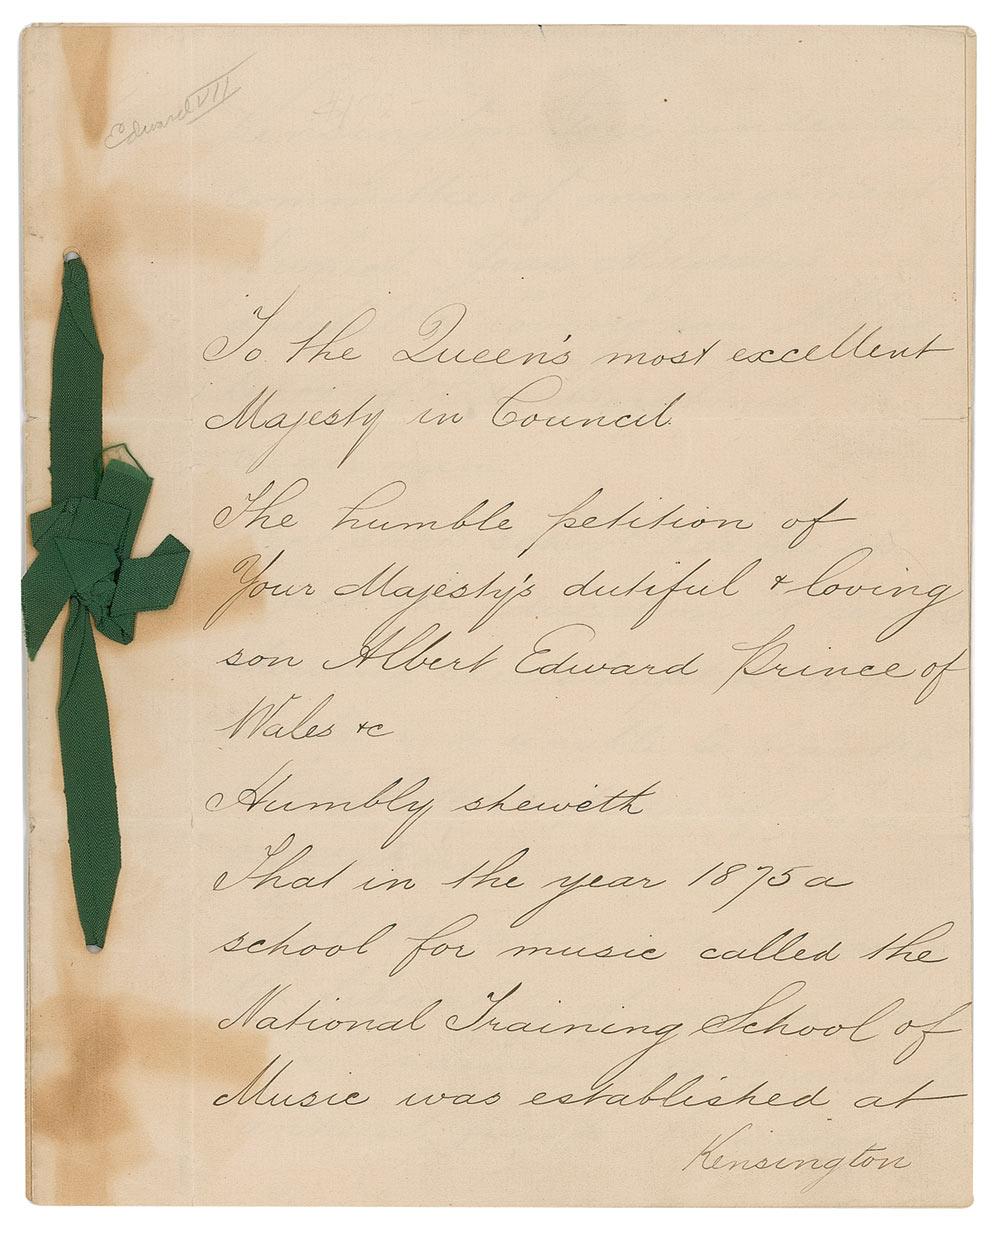 Edward VII
To the Queen's most excellent
Majesty in Council.
The humble petition of
Your Majesty's dutiful & loving
son Albert Edward Prince of
Wales &c
Humbly sheweth
That in the year 1875 a
school for music called the
National Training School of
Music was established at
Kensington